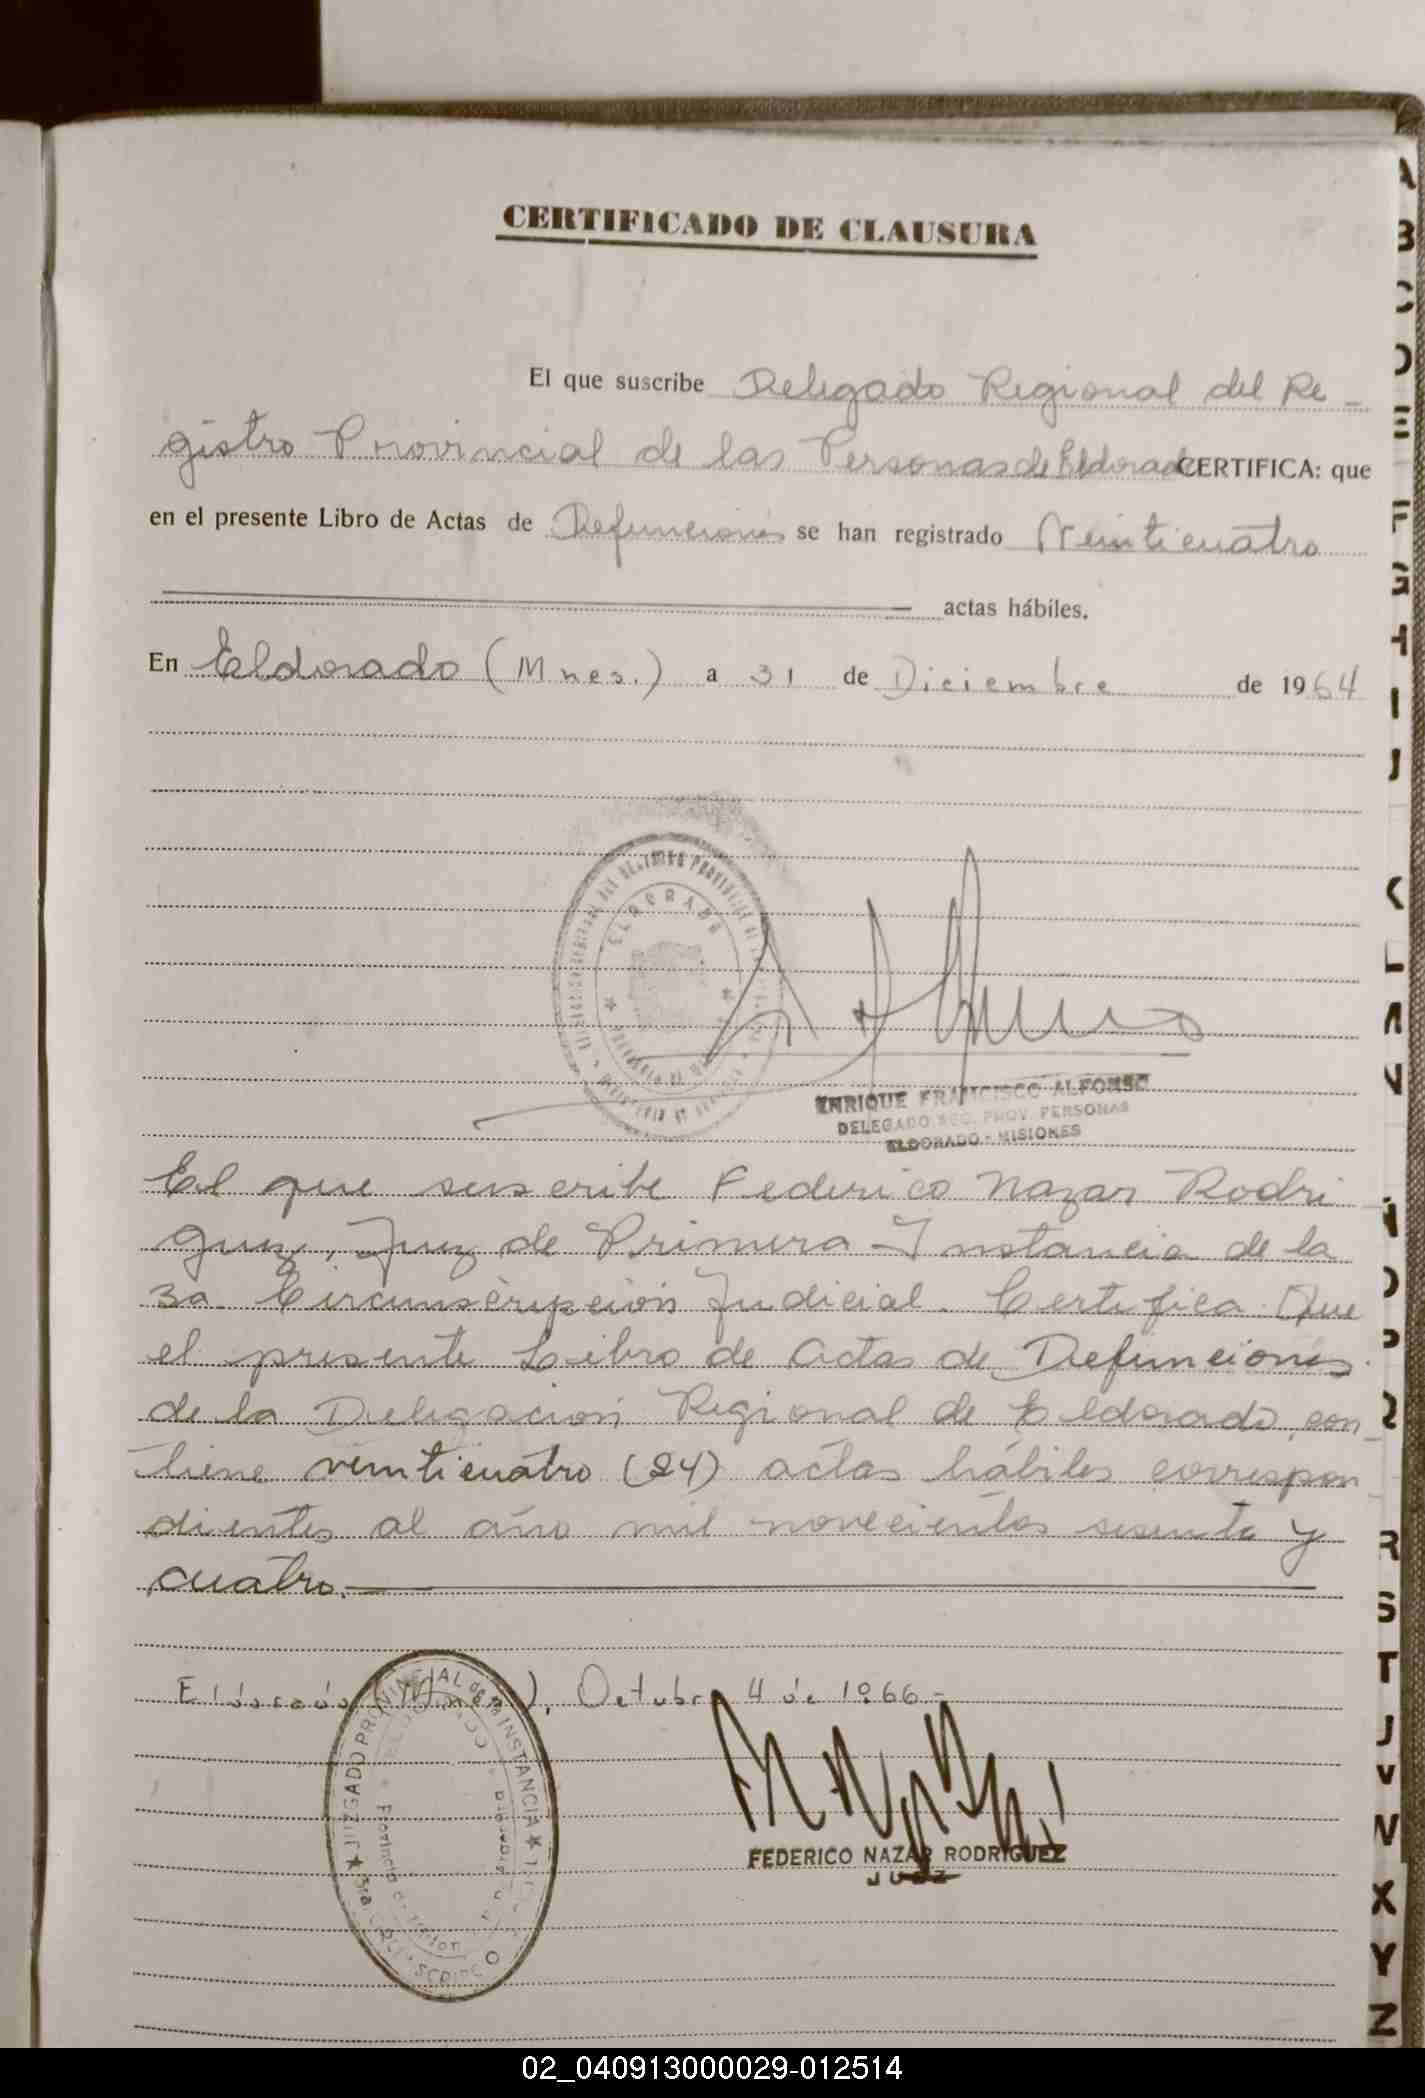 CERTIFICADO DE CLAUSURA
El que suscribe Delegado Regional del Re-
gistro Provincial de las Personas de Eldorado CERTIFICA: que
en el presente Libro de Actas de Defunciones se han registrado Veinticuatro
actas hábiles.
En Eldorado (Mnes.) a 31 de Diciembre de 1964
ELDORADO
ENRIQUE FRANCISCO ALFONSO
DELEGADO REG. PROV. PERSONAS
ELDORADO - MISIONES
El que suscribe Federico Nazar Rodri
guez, Juez de Primera Instancia de la
3a. Circunscripción Judicial. Certifica: Que
el presente Libro de actas de Defunciones
de la Delegación Regional de Eldorado, con
tiene veinticuatro (24) actas hábiles correspon
dientes al año mil novecientos sesenta y
cuatro.
Eldorado (Mnes), Octubre 4 de 1966-
JUZGADO PROVINCIAL de 1a INSTANCIA
FEDERICO NAZAR RODRIGUEZ
JUEZ
A
B
C
D
E
F
G
H
I
J
K
L
M
N
Ñ
O
P
Q
R
S
T
U
V
W
X
Y
Z
02_040913000029-012514